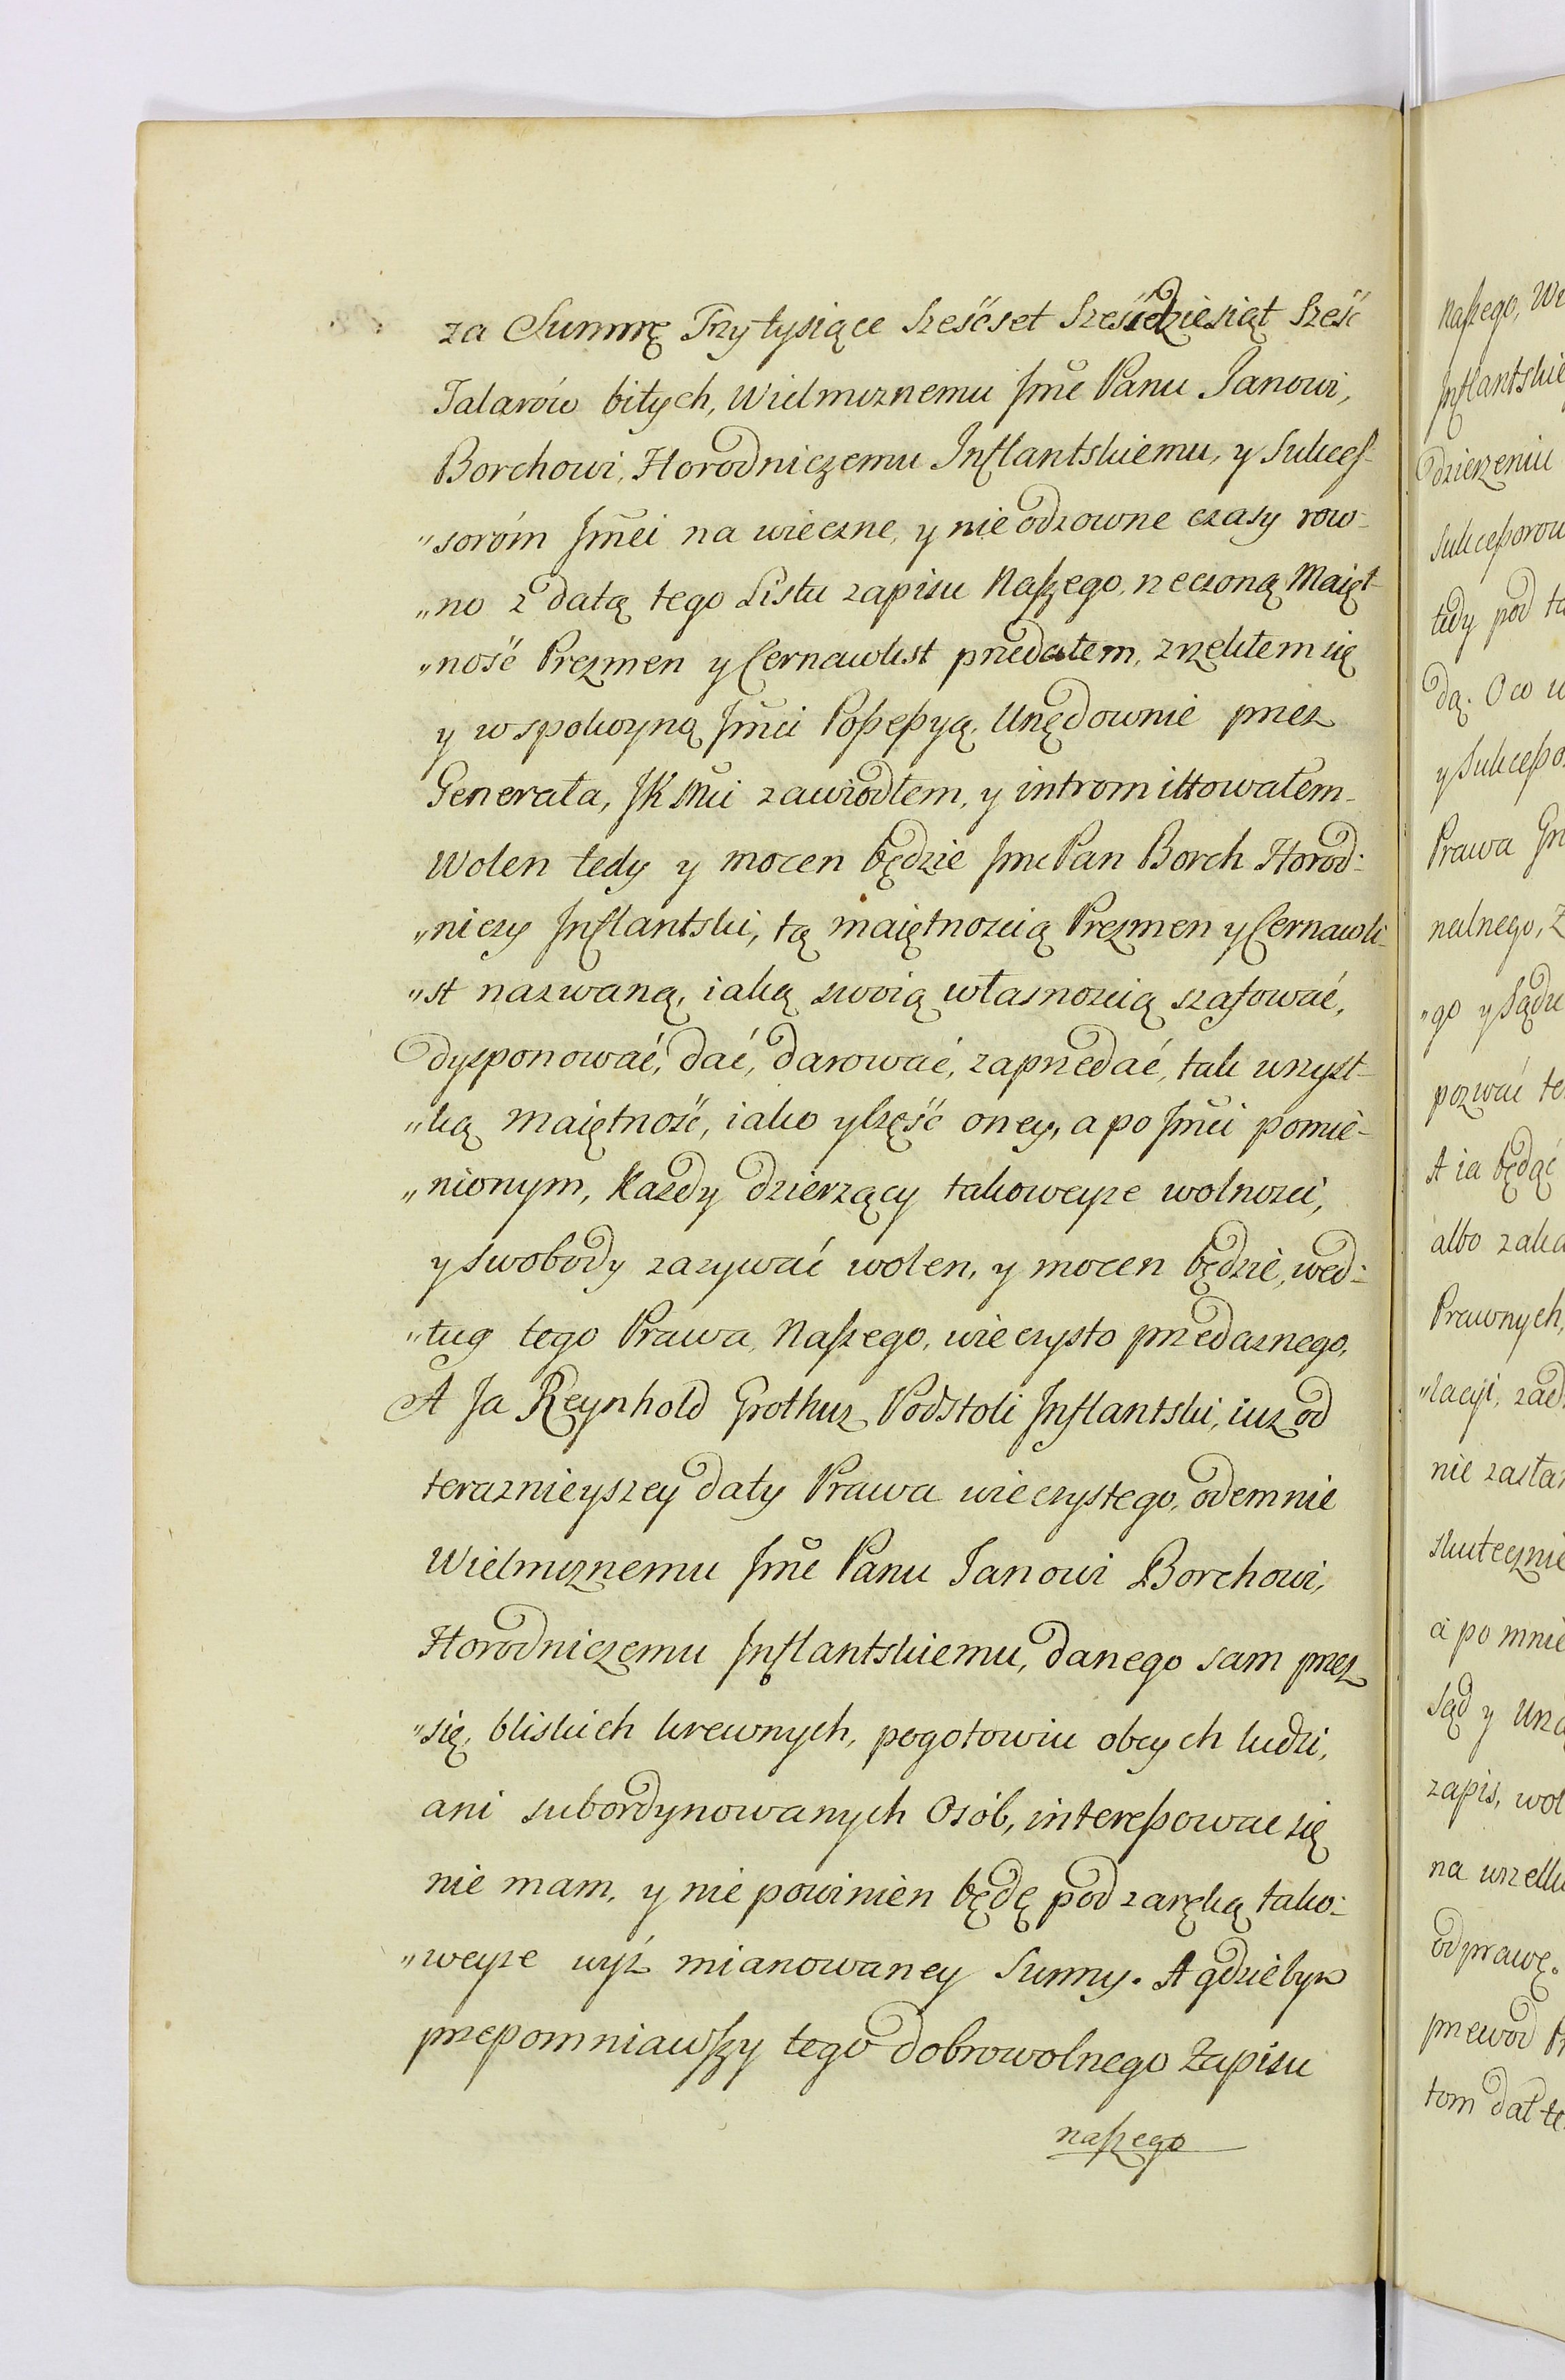 za Summę Trzy tysiące Sześćset Sześćdziesiąt Sześć
Talarów bitych, Wielmoznemu Jmć Panu Janowi,
Borchowi, Horodniczemu Inflantskiemu, y Sukces-
„soróm Jmći na wieczne, y nieodzowne czasy row-
„no z datą tego Listu zapisu Naszego, rzeczoną Maięt-
„ność Prezmen y Cernawkst przedałem, zrzekłem się
y w spokoyną Jmći Possessyą, Urzędownie przez
Generała, JKMći zawiodłem, y intromittowałem.
Wolen tedy y mocen będzie Jmć Pan Borch Horod:
„niczy Inflantski, tą maiętnozcią Prezmen y Cernawk-
„st nazwaną, iaką swoią własnozcią szafować,
dysponować, dać, darować, zaprzedać, tak wszyst-
„ką Maiętność, iako y Część oney, a po Jmći pomie-
„nionym, Kazdy dzierzący takoweysze wolnozci,
y swobody zazywać wolen, y mocen będzie, wed:
„ług tego Prawa, Naszego, wieczysto przedaznego,
A Ja Reynhold Grothuz Podstoli Inflantski, iuz od
teraznieyszey daty Prawa wieczystego, odemnie
Wielmoznemu Jmć Panu Janowi Borchowi,
Horodniczemu Inflantskiemu, danego sam przez
„się, bliskich krewnych, pogotowiu obcych ludzi,
ani subordynowanych Osób, interessowac się
nie mam, y nie powinien będę pod zaręką tako:
„weyze wyż mianowaney Summy. A gdziebym
przepomniawszy tego dobrowolnego Zapisu
naszego
naszego, We
Inflantskie
dzierzeniu
Sukcessorow
tedy pod ta
dą. O co w
y Sukcesso
Prawa Gr
nalnego, Z
„go y Sądu
pozwać te
A ia będąć
albo zaka
Prawnych,
„lacyi, zad
nie zasta
skutecznie
a po mnie
Sąd y Urz
zapis, wol
na wszelk
odprawę.
przewod Pr
tom dał te